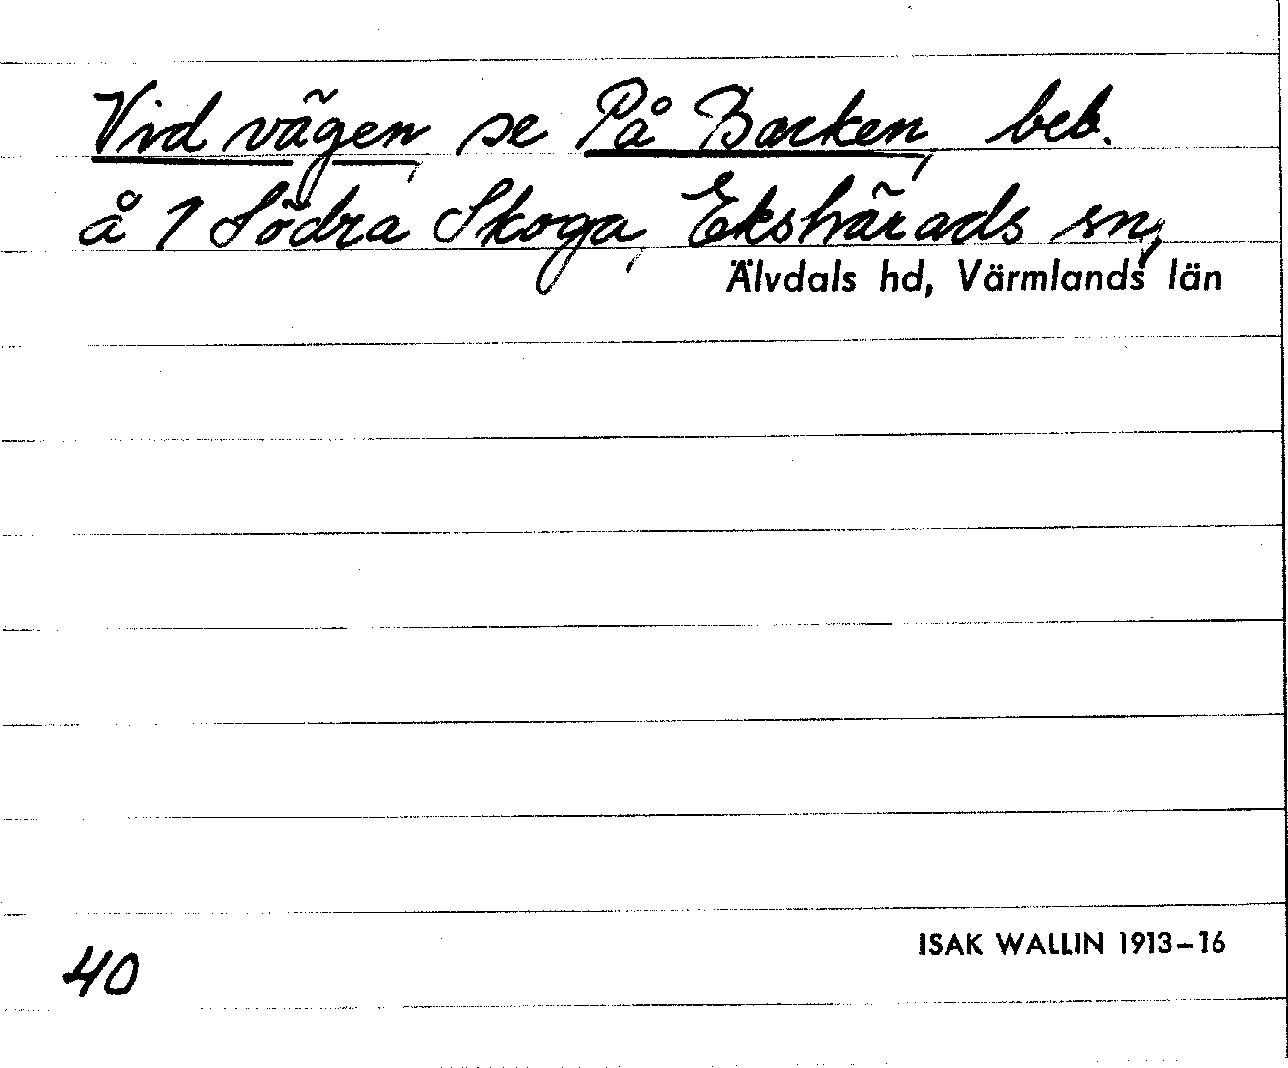 Vid vägen, se På Backen, beb.
å 1 Södra Skoga, Ekshärads sn,
Älvdals hd, Värmlands län
ISAK WALLIN 1913–16
40